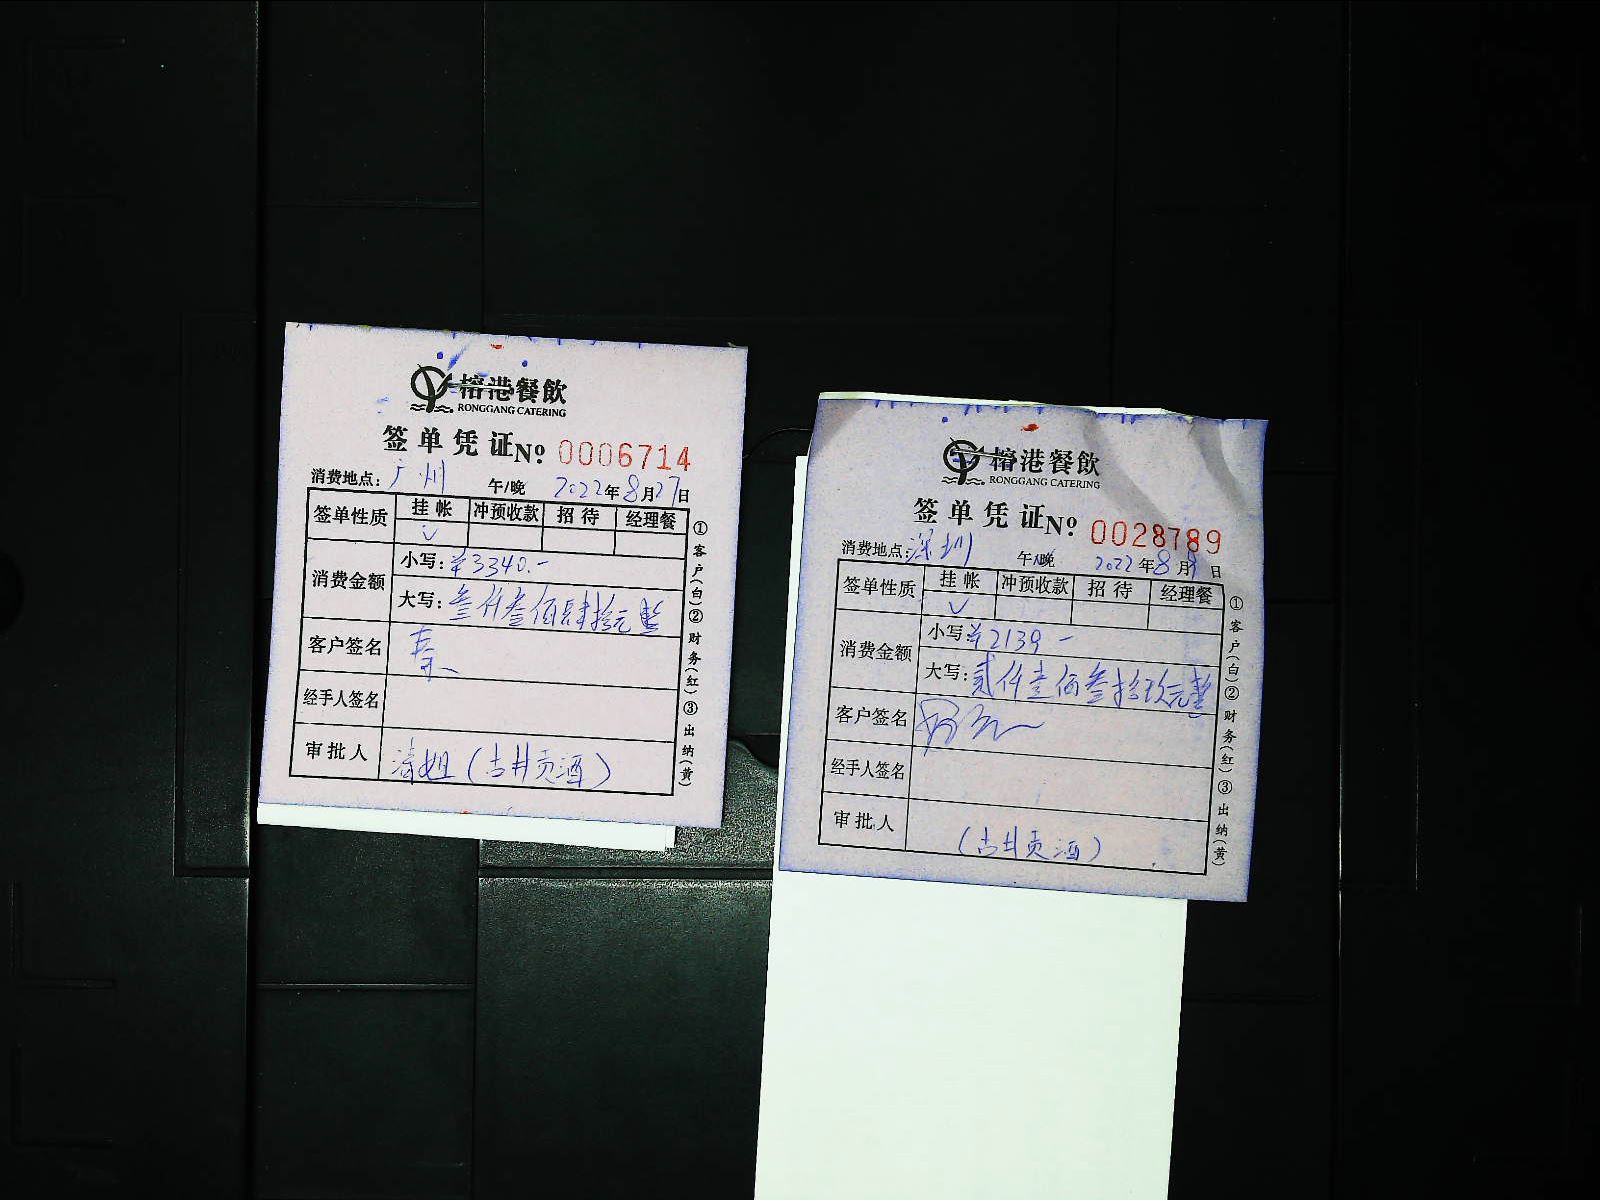 榕港餐飲
RONGGANG CATERING
签单凭证 № 0006714
消费地点: 广州 午/晚 2022年8月27日
签单性质 挂帐 冲预收款 招待 经理餐
√
消费金额 小写: ¥3340.-
大写: 叁仟叁佰肆拾元整
客户签名
经手人签名
审批人 姐(古井贡酒)
①客户(白)②财务(红)③出纳(黄)
榕港餐飲
RONGGANG CATERING
签单凭证 № 0028789
消费地点: 深圳 午/晚 2022年8月 日
签单性质 挂帐 冲预收款 招待 经理餐
√
消费金额 小写: ¥2139-
大写: 贰仟壹佰叁拾玖元整
客户签名
经手人签名
审批人 (古井贡酒)
①客户(白)②财务(红)③出纳(黄)